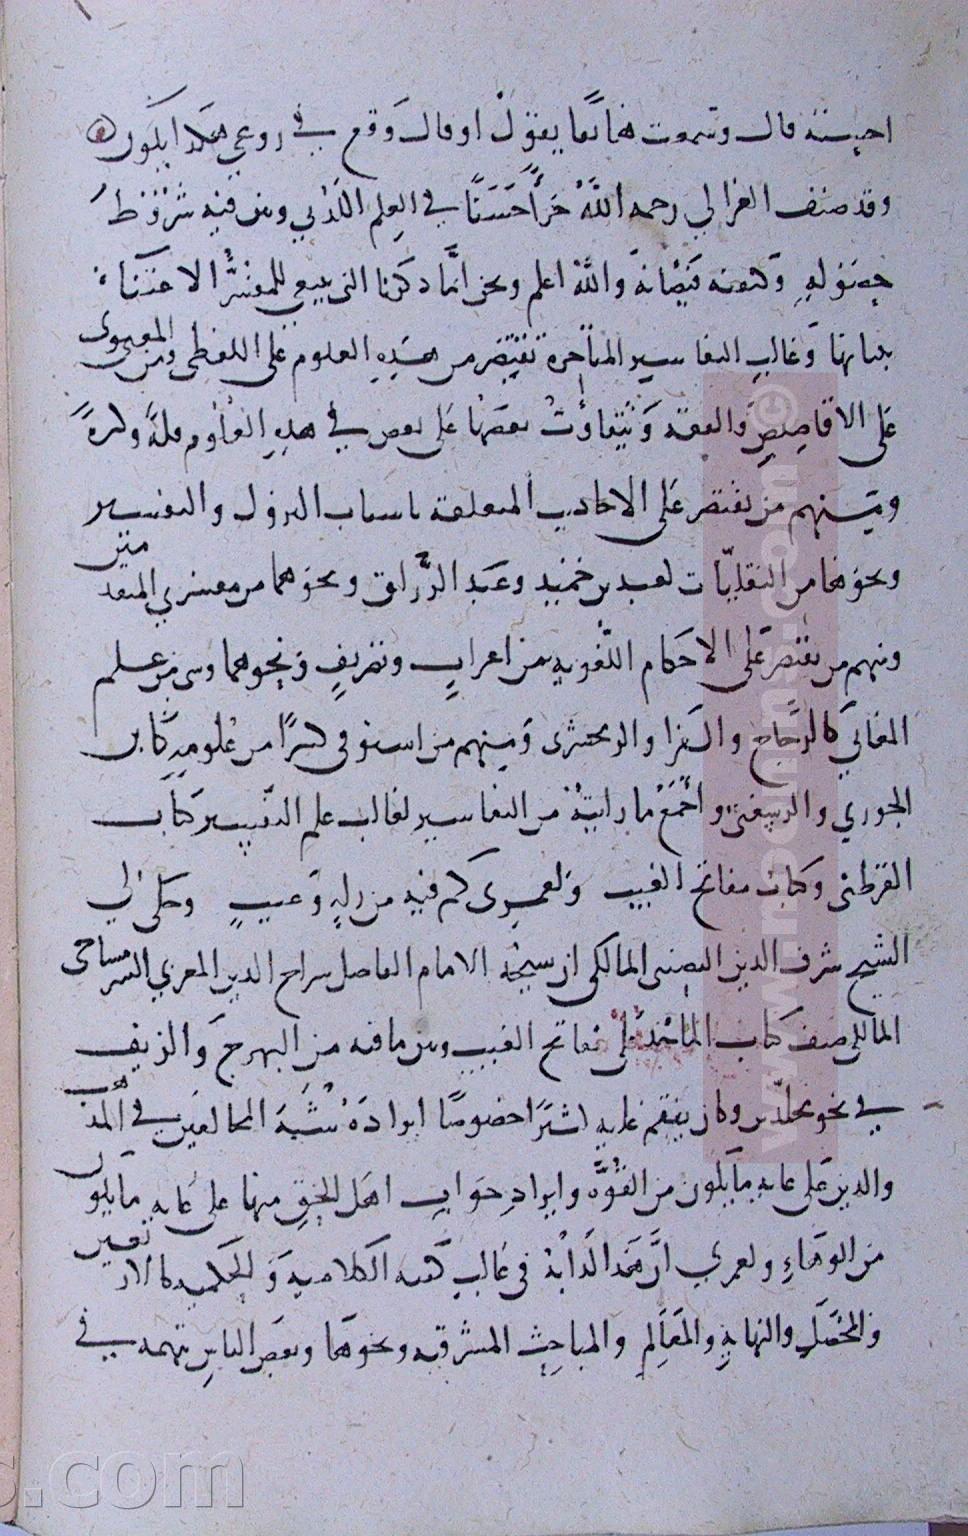 احببته قال وسمعت هاتفا يقول او قال وقع في روعي هكذا يكون
وقد صنف الغزالي رحمه الله جزأ حسنا في العلم اللدني وبين فيه شروط
حصوله وكيفية فيضانه والله اعلم ونحن انما ذكرنا التي ينبغي للمفسر الاعتناء
ببيانها وغالب التفاسير المتأخرة تقتصر من هذه العلوم على اللفظي والمعنوي ومن
على الاقاصيص والفقه وتتفاوت بعضها على بعض في هذه العلوم قلة وكثرة
ومنهم من يقتصر على الاحاديث المتعلقة باسباب النزول والتفسير
ونحوها من النقليات كعبد بن حميد وعبد الرزاق ونحوهما من مفسري المتقدمين
ومنهم من يقتصر على الاحكام اللغوية من اعراب وتصريف ونحوهما وشي من علم
المعاني كالزجاج والفرا والزمخشري ومنهم من استوفى كثيرا من علومه كابن
الجوزي والرسعني واجمع ما رأيته من التفاسير لغالب علم التفسير كتاب
القرطبي وكتاب مفاتح الغيب ولعمري كم فيه من زلة وعيب وحكى لي
الشيخ شرف الدين النصيبي المالكي ان شيخه الامام الفاضل سراج الدين المغربي السرمساحي
المالكي صنف كتاب المآخذ على مفاتح الغيب وبين ما فيه من البهرج والزيف
في نحو مجلدين وكان ينقم عليه كثيرا خصوصا ايراده شبه المخالفين في المذهب
والدين على غاية ما يكون من القوة وايراد جواب اهل الحق منها على غاية ما يكون
من الوهاء ولعمري ان هذا لدأبه في غالب كتبه الكلامية والحكمية كالاربعين
والمحصل والنهاية والمعالم والمباحث المشرقية ونحوها وبعض الناس يتهمه في
www.m...com ©
s.com